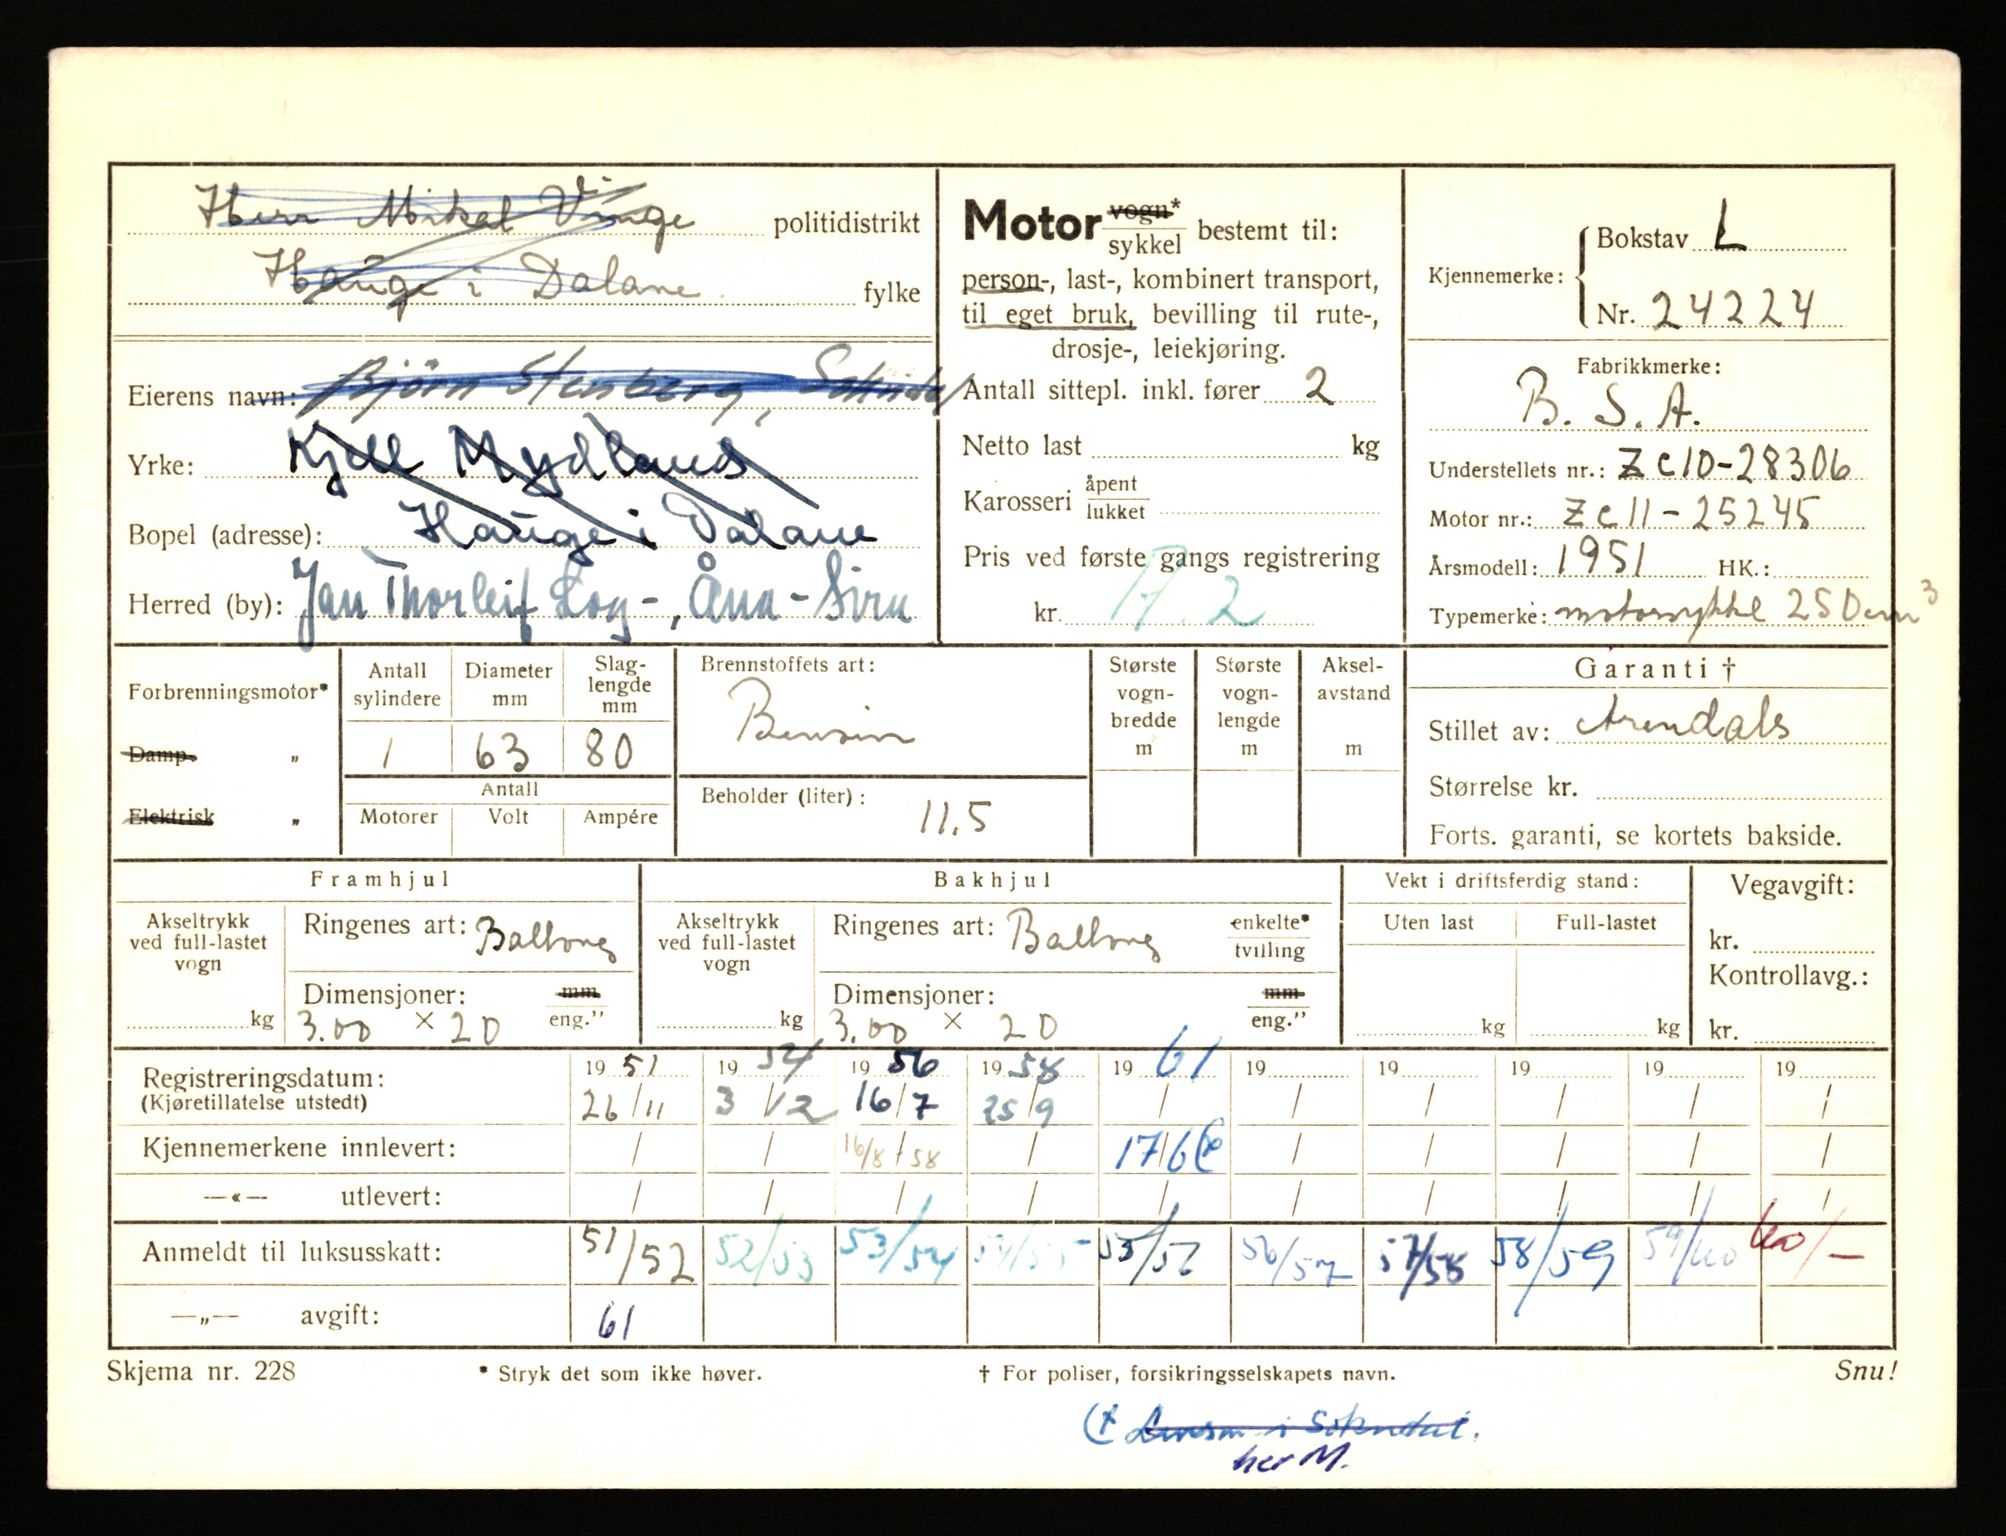 Herr Mikal Vinge politidistrikt
Hauge i Dalane fylke
Eierens navn: Björn Stenberg, Soknдal
Yrke: Kjell Mydland
Bopel (adresse): Hauge i Dalane
Herred (by): Jan Thorleif Log -, Åna-Sira
Motor vogn*
sykkel bestemt til:
person-, last-, kombinert transport,
til eget bruk, bevilling til rute-,
drosje-, leiekjøring.
Antall sittepl. inkl. fører 2
Netto last kg
Karosseri åpent
lukket
Pris ved første gangs registrering
kr. A. 2
Kjennemerke:
Bokstav L
Nr. 24224
Fabrikkmerke:
B. S. A.
Understellets nr.: Zc10-28306
Motor nr.: Zc11-25245
Årsmodell: 1951 HK.:
Typemerke: motorsykkel 250cm³
Forbrenningsmotor*
Damp- „
Elektrisk „
Antall sylindere
Diameter mm
Slag-lengde mm
1 63 80
Antall
Motorer Volt Ampére
Brennstoffets art:
Bensin
Beholder (liter): 11.5
Største vogn-bredde m
Største vogn-lengde m
Aksel-avstand m
Garanti †
Stillet av: Arendals
Størrelse kr.
Forts. garanti, se kortets bakside.
Framhjul
Akseltrykk ved full-lastet vogn
kg
Ringenes art: Ballong
Dimensjoner: mm
3.00 × 20 eng."
Bakhjul
Akseltrykk ved full-lastet vogn
kg
Ringenes art: Ballong enkelte*
tvilling
Dimensjoner: mm
3.00 × 20 eng."
Vekt i driftsferdig stand:
Uten last Full-lastet
kg kg
Vegavgift:
kr.
Kontrollavg.:
kr.
Registreringsdatum: 19 51 19 54 19 56 19 58 19 61 19 19 19 19 19
(Kjøretillatelse utstedt) 26/11 3/12 16/7 25/9 / / / / / /
Kjennemerkene innlevert: / / 16/8 / 58 / 17/6 / / / / /
—«— utlevert: / / / / / / / / / /
Anmeldt til luksusskatt: 51/52 52/53 53/54 54/55 55/56 56/57 57/58 58/59 59/60 60/—
—„— avgift: 61
Skjema nr. 228 * Stryk det som ikke høver. † For poliser, forsikringsselskapets navn. Snu!
i Sokndal.
her M.